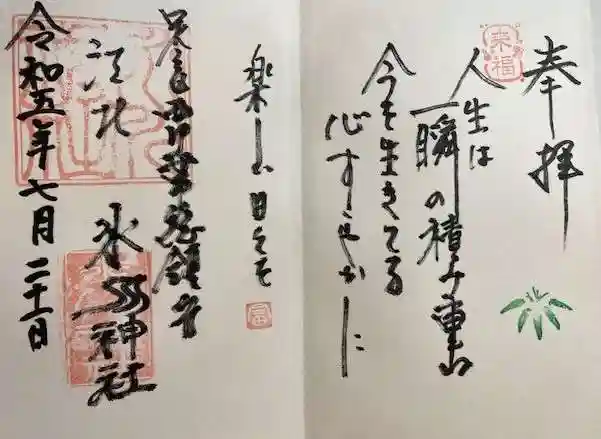 奉拝
来福
人生は
一瞬の積み重ね
今を生きてる
心すこやかに
楽しい日々を
江北
氷川神社
令和五年七月二十一日